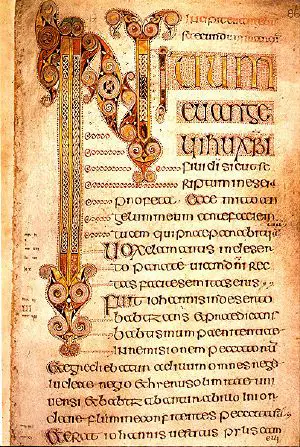 INITIUM
EUANGE
LII IHU XRI
fili di sicut sc
riptum est in esaia
profeta Ecce mitto an
gelum meum ante faciem
tuam qui
Uox clamantis in deser
to parate uiam dni rec
tas facite semitas eius
Fuit iohannis in deserto
babtizans et praedicans
babtismum paenitentiae
in remisionem peccatorum
Et egrediebatur ad illum omnes
iudeae regio et hierusolimitae uni
uersi et babtizabantur ab illo in ior
dane flumine confitentes peccata sua
Et erat iohannis uestitus pilis cam
eli